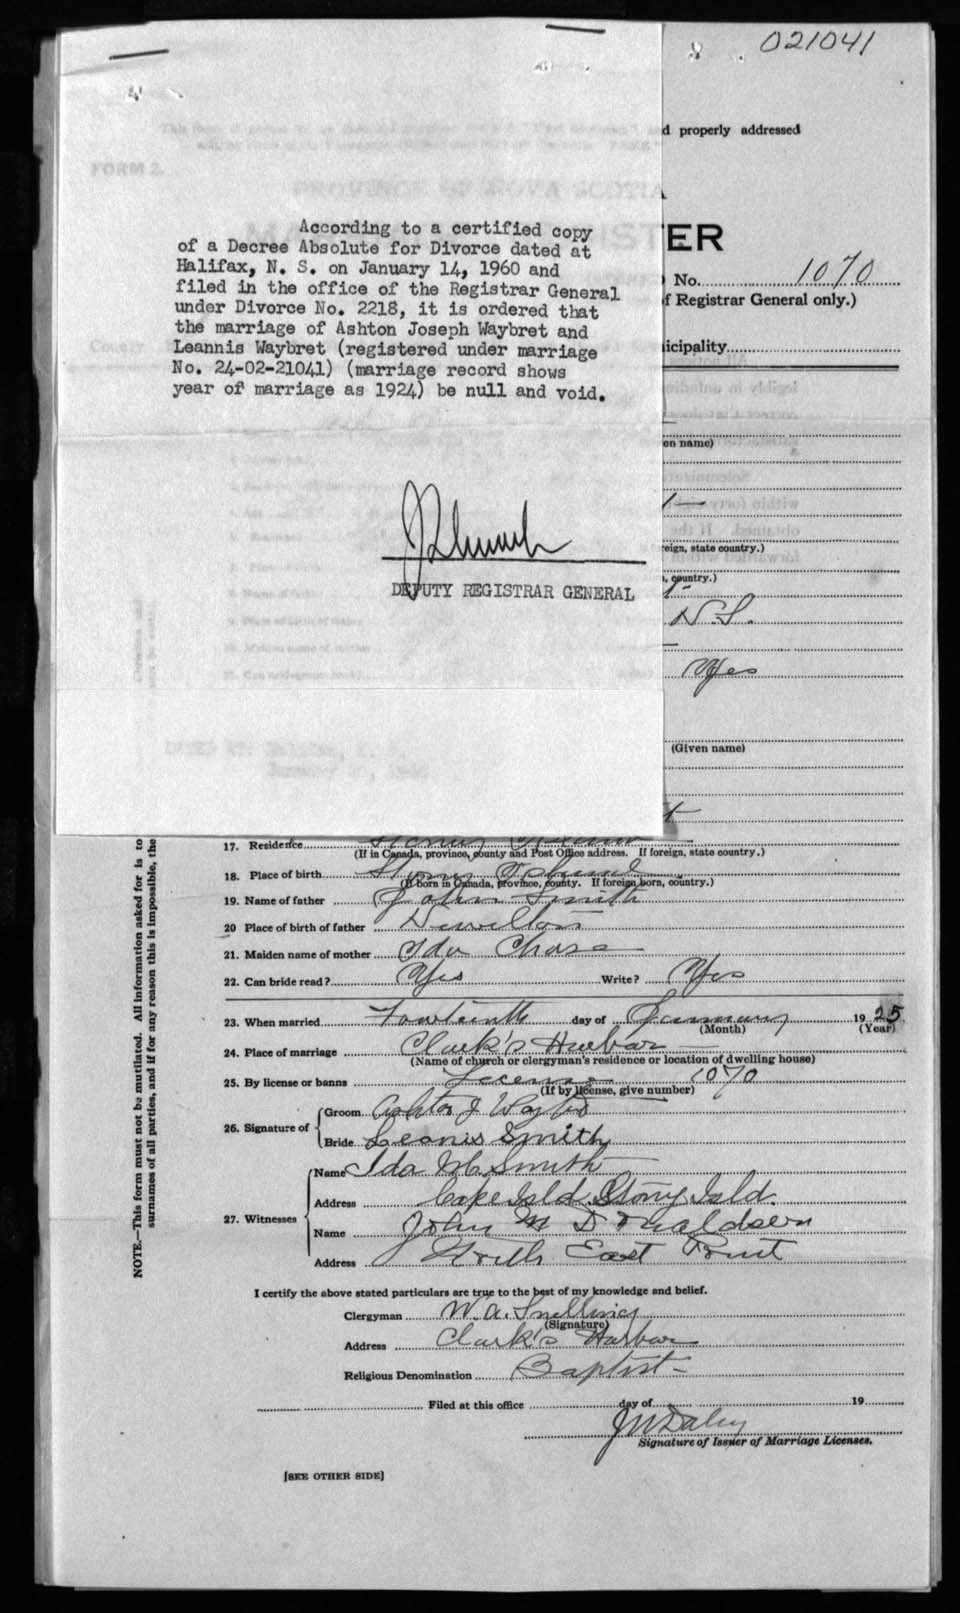 021041
d properly addressed
FORM 2.
PROVINCE OF NOVA SCOTIA
ER
No. 1070
f Registrar General only.)
icipality
According to a certified copy
of a Decree Absolute for Divorce dated at
Halifax, N. S. on January 14, 1960 and
filed in the office of the Registrar General
under Divorce No. 2218, it is ordered that
the marriage of Ashton Joseph Waybret and
Leannis Waybret (registered under marriage
No. 24-02-21041) (marriage record shows
year of marriage as 1924) be null and void.
DEPUTY REGISTRAR GENERAL
en name)
reign, state country.)
, country.)
N.S.
Yes
(Given name)
17. Residence
(If in Canada, province, county and Post Office address. If foreign, state country.)
18. Place of birth Stony Island
(If born in Canada, province, county. If foreign born, country.)
19. Name of father John Smith
20 Place of birth of father
21. Maiden name of mother Ida Chase
22. Can bride read? Yes Write? Yes
23. When married Fourteenth day of January 1925
(Month) (Year)
24. Place of marriage Clark's Harbor
(Name of church or clergyman's residence or location of dwelling house)
25. By license or banns License 1070
(If by license, give number)
26. Signature of Groom Ashton J Waybret
Bride Leanis Smith
27. Witnesses Name Ida M. Smith
Address Cape Isld. Stony Isld.
Name John M Donaldsen
Address North East Point
I certify the above stated particulars are true to the best of my knowledge and belief.
Clergyman W. A. Snelling
(Signature)
Address Clark's Harbor
Religious Denomination Baptist
Filed at this office day of 19
Signature of Issuer of Marriage Licenses.
[SEE OTHER SIDE]
NOTE.—This form must not be mutilated. All information asked for is to
surnames of all parties, and if for any reason this is impossible, the